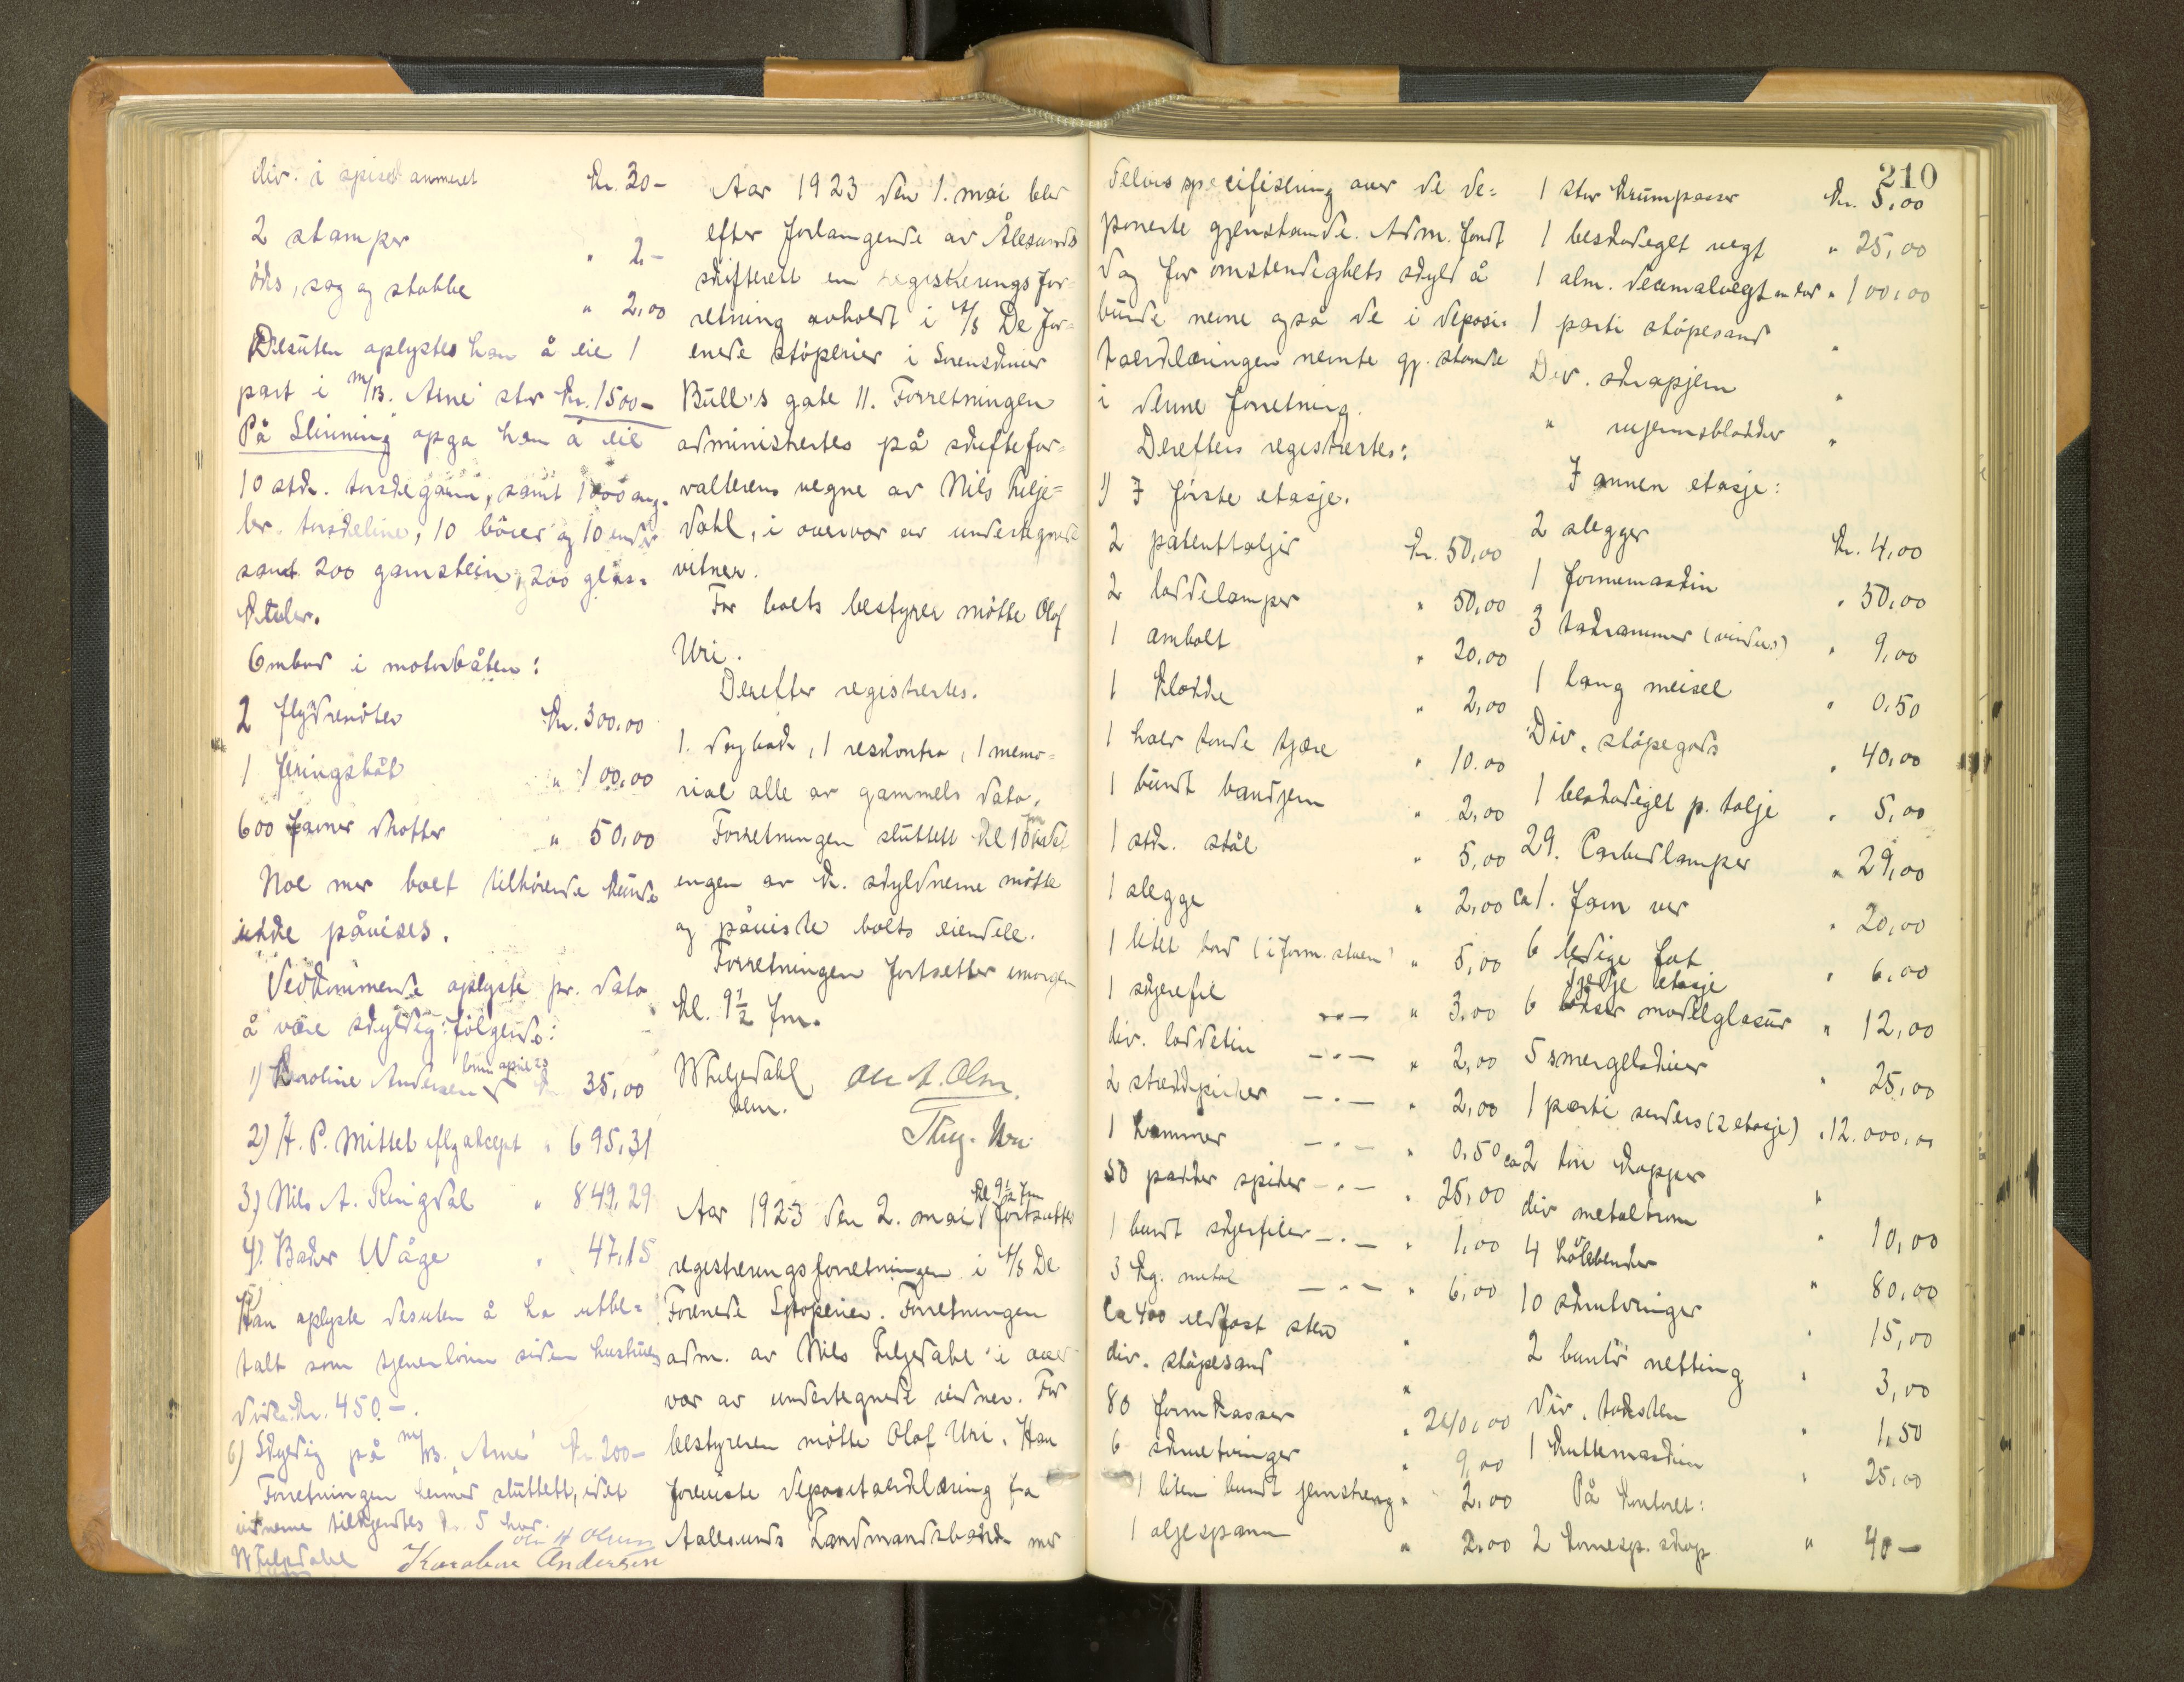 div. i spiset anmeret kr. 30-
2 stamper " 2,-
öks, sag og stabbe " 2,00
Desuten oplystes han å eie 1
part i m/B. Arne stor kr. 1500-
På Slinning opga han å eie
10 stk. torskegarn, samt 1000 ang-
ler torskeline, 10 böier og 10 ender
samt 200 garnstein, 200 glas-
kuler.
Ombord i motorbåten:
2 flydrenöter kr. 300,00
1 feringsbåt " 100,00
600 favner " 50,00
Noe mer boet tilhörende kunde
ikke påvises.
Vedkommende oplyste pr. dato
å være skyldig fölgende:
1) Karoline Andersen lönn april 23 kr. 35,00
2) H. P. Mittet iflg aksept " 695,31
3) Nils A. Ringdal " 849,29
4) Baker Wåge " 47,15
5)
Han oplyste desuten å ha utbe-
talt som tjenerlönn siden hustrues
kr. 450-.
6) Skyldig på m/B. Arne kr 200-
Forretningen hermed sluttett, idet
vidnerne tilkjendtes kr. 5 hver.
Ole H Olsen
Karoline Andersen
Aar 1923 den 1. mai blev
efter forlangende av Ålesunds
skifterett en registreringsfor-
retning avholdt i A/S De for-
enede stöperier i Lorensdinier
Bull's gate 11. Forretningen
administrertes på skiftefor-
valterens vegne av Nils Hilje-
dahl, i overvær av undertegnede
vitner.
For boets bestyrer mötte Olof
Uri.
Derefter registrertes.
1. dagbok, 1 reskontro, 1 memo-
rial alle av gammels dato,
Forretningen sluttett kl 10 fm idet
ingen av de. skyldnerne mötte
og påviste boets eiendele.
Forretningen fortsetter imorgen
kl. 9½ fm.
NHiljedahl
Ole A. Olsen
Aar 1923 den 2. mai kl 9½ fm fortsattes
registreringsforretningen i A/S De
Forenede Stöperier. Forretningen
adm. av Nils Hiljedahl i over-
vær av undertegnede vidner. For
bestyreren mötte Olof Uri. Han
foreviste depositaerklæring fra
Aalesunds Landmandsbank med
210
delvis specifisering over de de-
ponerte gjenstande. Adm. fandt
dog for omstendighets skyld å
burde nevne også de i deposi-
taerklæringen nevnte gj.stande
i denne forretning.
Derefter registrertes:
1) I förste etasje.
2 patenttaljer kr. 50,00
2 loddelamper " 50,00
1 ambolt " 20,00
1 klokke " 2,00
1 halv tonde tjære " 10.00
1 bundt bandjern " 2,00
1 stk. stål " 5,00
1 slegge " 2,00
1 litet bord (i form. stuen) " 5,00
1 skjerefil -"- " 3,00
div. loddetin -"- " 2,00
2 -"- " 2,00
1 hammer -"- " 0,50
50 pakker spiker -"- " 25,00
1 bundt skjerfiler -"- " 1,00
3 kg. metal -"- " 6,00
Ca 400 ildfast sten "
div. stöpesand "
80 formkasser " 240,00
6 " 9,00
1 liten bundt jernstreng " 2,00
1 oljespann " 2,00
1 stor krumpasser kr. 5,00
1 beskadiget vegt " 25,00
1 alm. decimalvegt m lod " 100,00
1 parti stöpesand "
Div. skrapjern "
" "
I annen etasje:
2 slegger kr. 4,00
1 formemaskin " 50,00
3 takrammer (vindus) " 9,00
1 lang meisel " 0,50
Div. stöpegods " 40,00
1 beskadiget p. talje " 5,00
29. Carbidlamper " 29,00
ca 1. favn ved " 20,00
6 ledige fat " 6,00
Tredje etasje
6 bokser modellglasur " 12,00
5 smergelskiver " 25,00
1 parti (2 etasje) " 12.000,00
ca 2 ton kopper "
div metaltrom " 10,00
4 " 80,00
10 " 15,00
2 buntr netting " 3,00
div. taksten " 1,50
1 kuttemaskin " 25,00
På kontoret:
2 skap " 40-